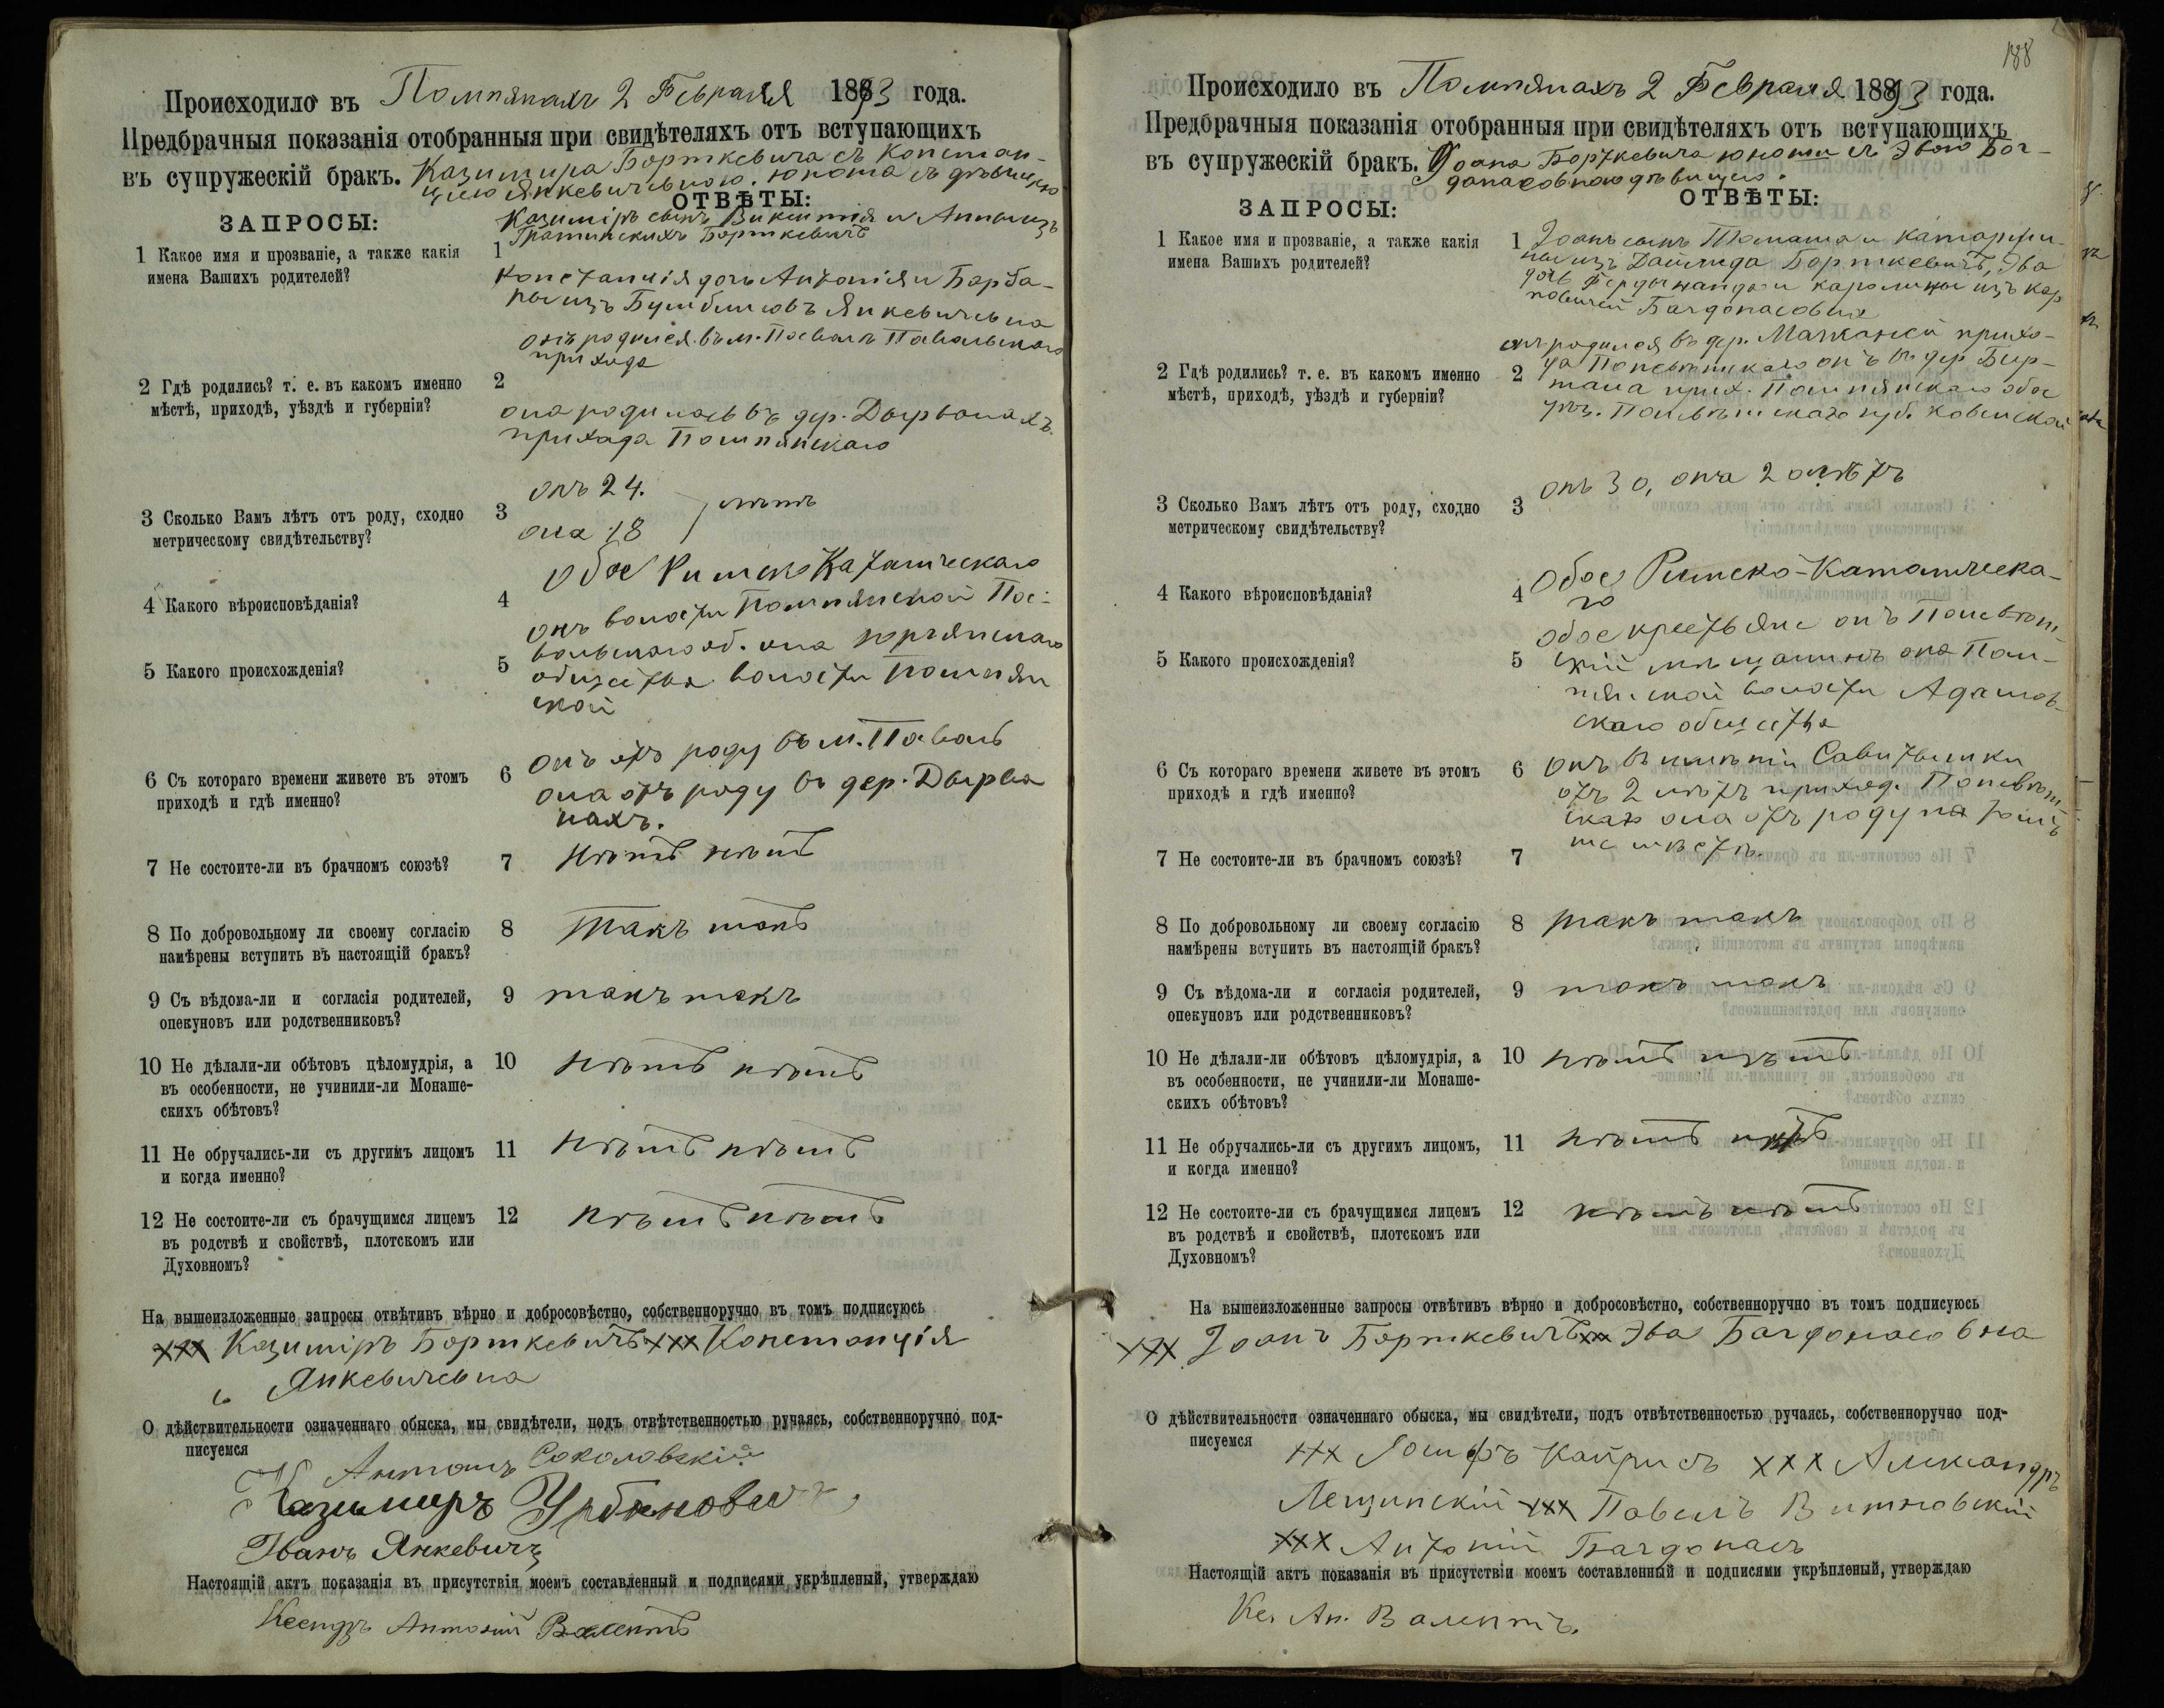 Происходило въ Помпянахъ 2 Февраля 1893 года.
Предбрачныя показанія отобранныя при свидѣтеляхъ отъ вступающихъ
въ супружескій бракъ. Казимира Борткевича съ Констан-
ціею Янкевичевною. юноша съ дѣвицею
ОТВѢТЫ:
ЗАПРОСЫ:
1 Какое имя и прозваніе, а также какія
имена Вашихъ родителей?
1 Казиміръ сынъ Викентія и Анны изъ
Борткевичъ
Констанція дочь Антонія и Барба-
ры изъ Янкевичевна
2 Гдѣ родились? т. е. въ какомъ именно
мѣстѣ, приходѣ, уѣздѣ и губерніи?
2 онъ родился въ м. Поволь Повольскаго
прихода
она родилась въ дер. Дырванахъ
прихода Помпянскаго
3 Сколько Вамъ лѣтъ отъ роду, сходно
метрическому свидѣтельству?
3 онъ 24.
она 18 лѣтъ
4 Какого вѣроисповѣданія?
4 обое Римско Католическаго
5 Какого происхожденія?
5 онъ волости Помпянской По-
вольскаго об. она
общества волости Помпян
ской
6 Съ котораго времени живете въ этомъ
приходѣ и гдѣ именно?
6 онъ отъ роду въ м. Поволь
она отъ роду въ дер. Дырва
нахъ.
7 Не состоите-ли въ брачномъ союзѣ?
7 нѣтъ нѣтъ
8 По добровольному ли своему согласію
намѣрены вступить въ настоящій бракъ?
8 такъ такъ
9 Съ вѣдома-ли и согласія родителей,
опекуновъ или родственниковъ?
9 такъ такъ
10 Не дѣлали-ли обѣтовъ цѣломудрія, а
въ особенности, не учинили-ли Монаше-
скихъ обѣтовъ?
10 нѣтъ нѣтъ
11 Не обручались-ли съ другимъ лицомъ
и когда именно?
11 нѣтъ нѣтъ
12 Не состоите-ли съ брачущимся лицемъ
въ родствѣ и свойствѣ, плотскомъ или
Духовномъ?
12 нѣтъ нѣтъ
На вышеизложенные запросы отвѣтивъ вѣрно и добросовѣстно, собственноручно въ томъ подписуюсь
ххх Казиміръ Борткевичъ ххх Констанція
Янкевичевна
О дѣйствительности означеннаго обыска, мы свидѣтели, подъ отвѣтственностью ручаясь, собственноручно под-
писуемся
Антонъ Соколовскій
Казимиръ Урбановичъ
Иванъ Янкевичъ
Настоящій актъ показанія въ присутствіи моемъ составленный и подписями укрѣпленый, утверждаю
Ксендзъ Антоній Валентъ
188
Происходило въ Помпянахъ 2 Февраля 1893 года.
Предбрачныя показанія отобранныя при свидѣтеляхъ отъ вступающихъ
въ супружескій бракъ. Іоана Борткевича юноши съ Эвою Бог-
донасовною дѣвицею.
ОТВѢТЫ:
ЗАПРОСЫ:
1 Какое имя и прозваніе, а также какія
имена Вашихъ родителей?
1 Іоанъ сынъ Томаша и Катаржи-
ны изъ Дайлида Борткевичъ, Эва
дочь Фердынанда и Каролины изъ Кар
повичей Багдонасовна
2 Гдѣ родились? т. е. въ какомъ именно
мѣстѣ, приходѣ, уѣздѣ и губерніи?
2 онъ родился въ дер. прихо-
да Поневѣжскаго она въ дер
прих. Помпянскаго обое
уѣз. Поневѣжскаго губ. Ковенской
3 Сколько Вамъ лѣтъ отъ роду, сходно
метрическому свидѣтельству?
3 онъ 30, она 20 лѣтъ
4 Какого вѣроисповѣданія?
4 Обое Римско-Католическа-
го
5 Какого происхожденія?
5 обое крестьяне онъ Поневѣж-
скій мѣщанинъ она Пом-
пянской волости Адамов-
скаго общества
6 Съ котораго времени живете въ этомъ
приходѣ и гдѣ именно?
6 онъ въ имѣніи Савитышки
отъ 2 лѣтъ приход. Поневѣж-
скаго она отъ роду на томъ
же мѣстѣ.
7 Не состоите-ли въ брачномъ союзѣ?
7
8 По добровольному ли своему согласію
намѣрены вступить въ настоящій бракъ?
8 такъ такъ
9 Съ вѣдома-ли и согласія родителей,
опекуновъ или родственниковъ?
9 такъ такъ
10 Не дѣлали-ли обѣтовъ цѣломудрія, а
въ особенности, не учинили-ли Монаше-
скихъ обѣтовъ?
10 нѣтъ нѣтъ
11 Не обручались-ли съ другимъ лицомъ,
и когда именно?
11 нѣтъ нѣтъ
12 Не состоите-ли съ брачущимся лицемъ
въ родствѣ и свойствѣ, плотскомъ или
Духовномъ?
12 нѣтъ нѣтъ
На вышеизложенные запросы отвѣтивъ вѣрно и добросовѣстно, собственноручно въ томъ подписуюсь
ххх Іоанъ Борткевичъ ххх Эва Багдонасовна
О дѣйствительности означеннаго обыска, мы свидѣтели, подъ отвѣтственностью ручаясь, собственноручно под-
писуемся
ххх Іосифъ Кайрисъ ххх Александръ
Лещинскій ххх Павелъ Витковскій
ххх Антоній Багдонасъ
Настоящій актъ показанія въ присутствіи моемъ составленный и подписями укрѣпленый, утверждаю
Кс. Ан. Валентъ.